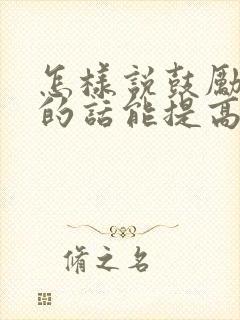 怎樣說鼓勵
的話能提高
脩之名